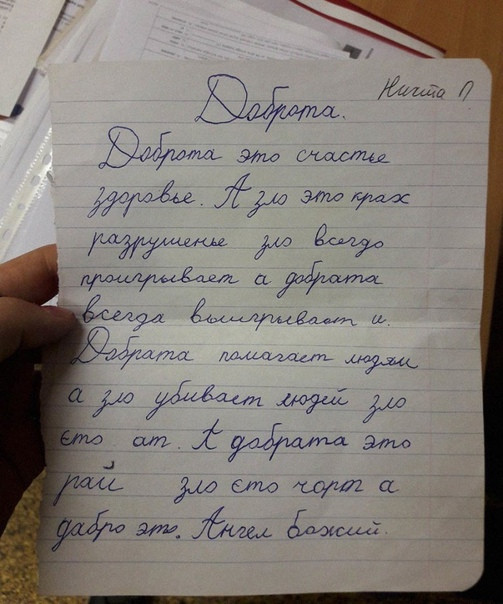 Никита П
Доброта.
Доброта это счастье
здоровье. А зло это крах
разрушенье зло всегдо
проигрывает а добрата
всегда выигрывает и.
Добрата помагает людям
а зло убивает людей зло
єто ат. А добрата это
рай зло єто чорт а
дабро это. Ангел Божий.